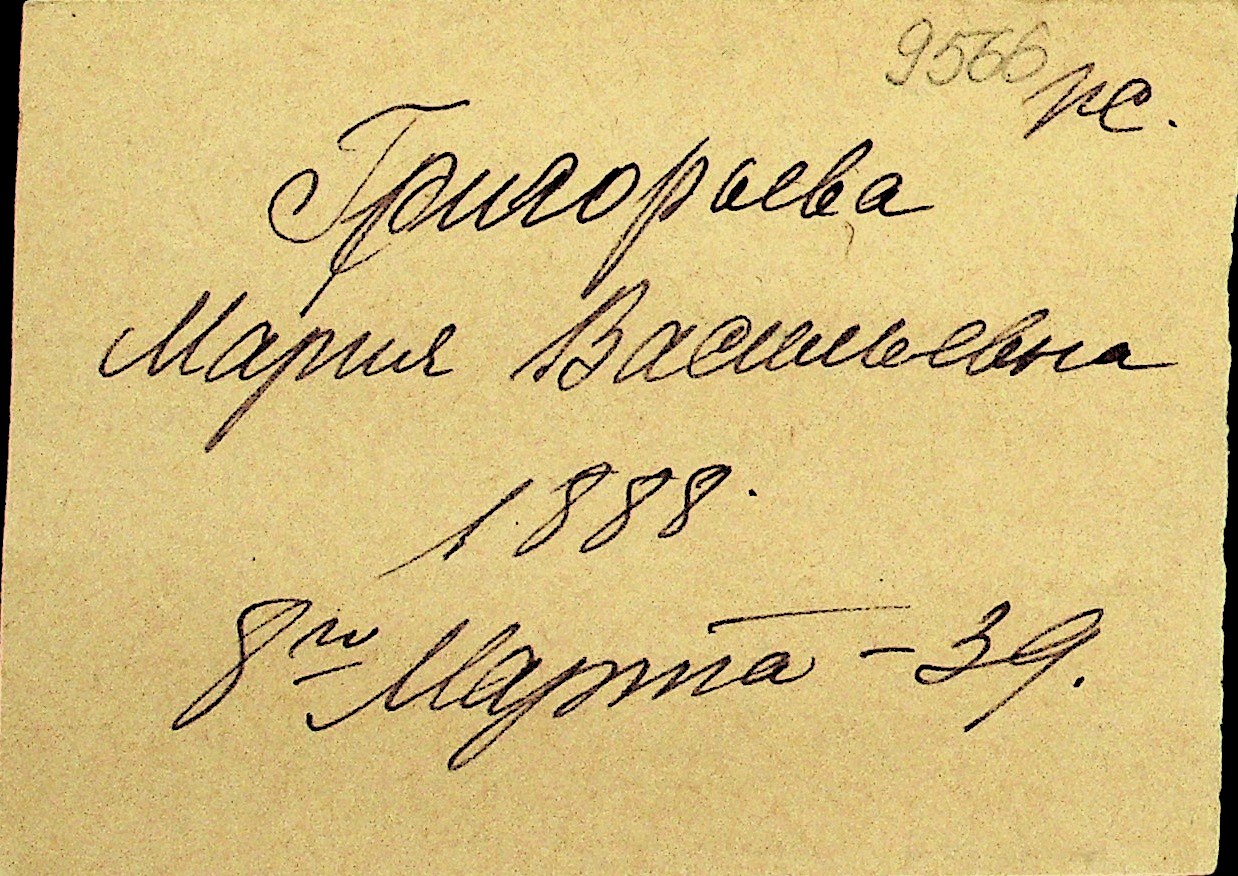 9566 рс.
Григорьева
Мария Васильевна
1888.
8го Марта - 39.